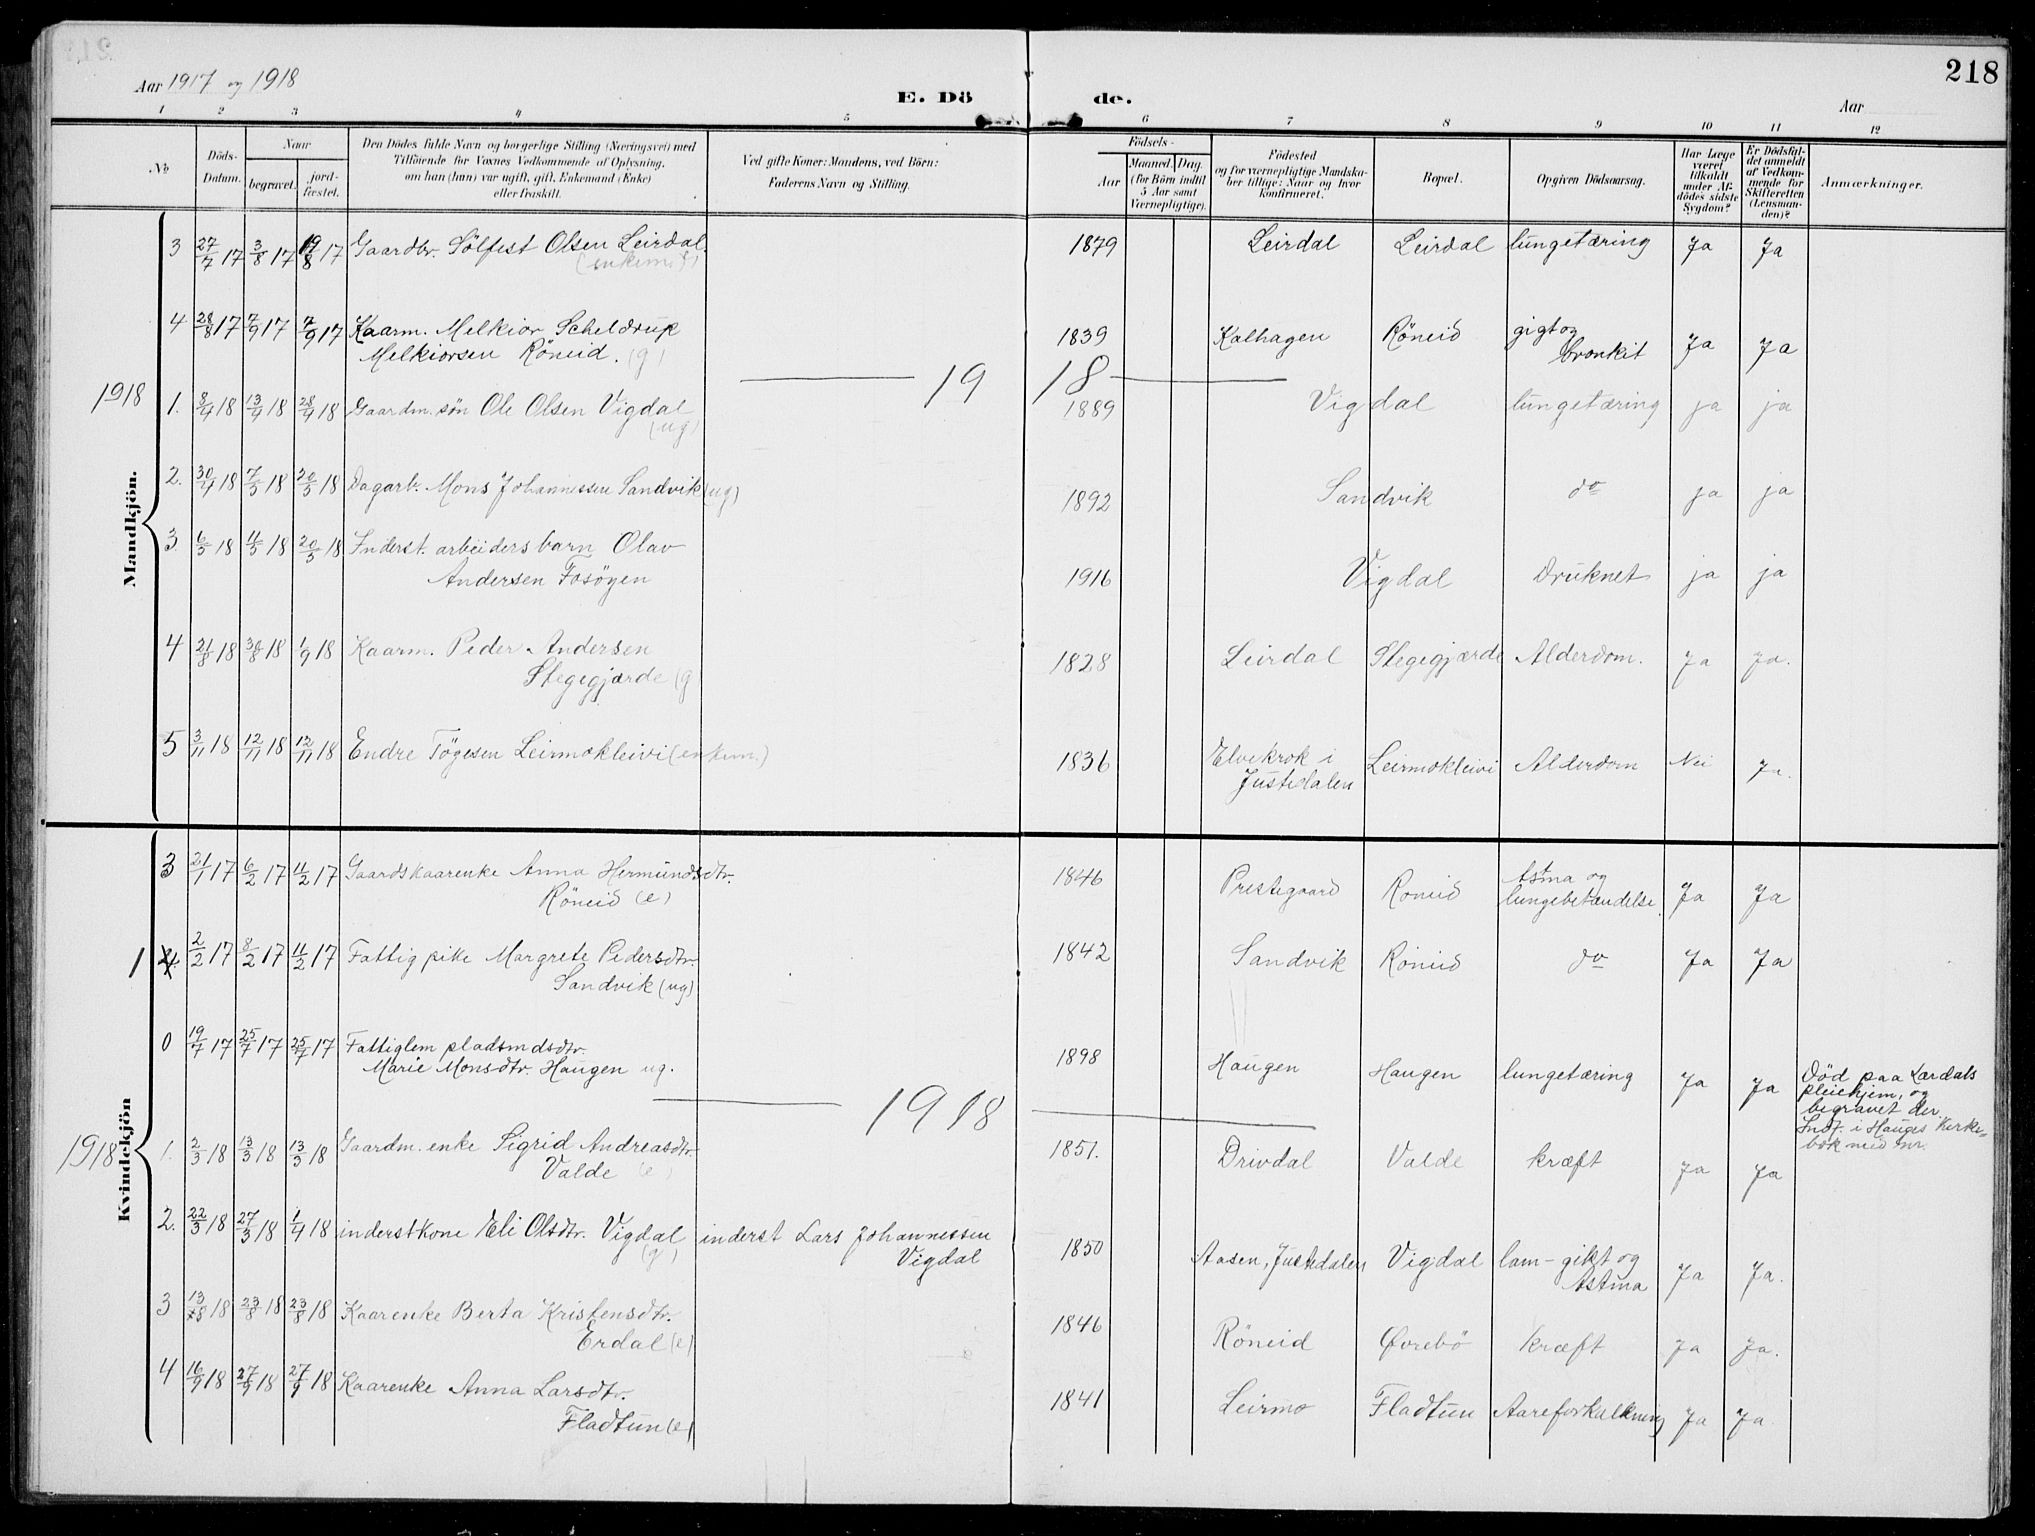 218
Aar 1917 og 1918
E. Dö de.
Aar
1 2 3 4 5 6 7 8 9 10 11 12
No
Döds-Datum.
Naar
begravet.
jord-fæstet.
Den Dödes fulde Navn og borgerlige Stilling (Næringsvei) med
Tilföiende for Voxnes Vedkommende af Oplysning,
om han (hun) var ugift, gift, Enkemand (Enke)
eller fraskilt.
Ved gifte Koner: Mandens, ved Börn:
Faderens Navn og Stilling.
Födsels-
Aar
Maaned. Dag.
(for Börn indtil
5 Aar samt
Værnepligtige).
Födested
og for værnepligtige Mandska-
ber tillige: Naar og hvor
konfirmeret.
Bopæl.
Opgiven Dödsaarsag.
Har Læge
været
tilkaldt
under Af-
dödes sidste
Sygdom?
Er Dödsfal-
det anmeldt
af Vedkom-
mende for
Skifteretten
(Lensman-
den)?
Anmærkninger.
Mandkjön.
3 27/7 17 3/8 17 19/8 17 Gaardbr. Sölfest Olsen Leirdal. 1879 Leirdal Leirdal lungetæring Ja Ja
(enkem.)
4 28/8 17 7/9 17 7/9 17 Kaarm. Melkior Scheldrup 1839 Kalhagen Röneid gigt og Ja Ja
Melkiorsen Röneid. (g) bronkit
19 18
1918
1. 8/4 18 13/4 18 28/4 18 Gaardm. sön Ole Olsen Vigdal 1889 Vigdal lungetæring ja ja
(ug)
2. 30/4 18 7/5 18 20/5 18 Dagarb. Mons Johannessen Sandvik (ug) 1892 Sandvik do ja ja
3 6/5 18 11/5 18 20/5 18 Inderst. arbeidersbarn Olav
Andersen Fosöyen 1916 Vigdal Druknet ja ja
4 21/8 18 30/8 18 1/9 18 Kaarm. Peder Andersen 1828 Leirdal Stegegjærde Alderdom. Ja Ja.
Stegegjærde (g)
5 3/11 18 12/11 18 12/11 18 Endre Tögesen Leirmokleivi (enkem.) 1836 Elvekrok i Leirmokleivi Alderdom Nei Ja.
Justedalen
Kvindekjön
3 21/1 17 6/2 17 11/2 17 Gaardskaarenke Anna Hermundsdtr. 1846 Prestegaard Roneid Astma og Ja Ja
Röneid (e) lungebetændelse.
1 4 2/2 17 8/2 17 11/2 17 Fattig pike Margrete Pedersdtr. 1842 Sandvik Röneid do Ja Ja
Sandvik (ug)
0 19/7 17 25/7 17 25/7 17 Fattiglem pladsmdsdtr. 1898 Haugen Haugen lungetæring Ja Ja
Marie Monsdtr. Haugen ug.
Död paa Lærdals
pleiehjem, og
begravet der.
Indf. i Hauges kirke-
bok med nr.
1918
1918
1. 2/3 18 13/3 18 13/3 18 Gaardm. enke Sigrid Andreasdtr 1851. Drivdal Valde kræft Ja Ja
Valde (e)
2. 22/3 18 27/3 18 1/4 18 inderstkone Eli Olsdtr. Vigdal inderst Lars Johannessen 1850 Aasen, Justedalen Vigdal lam-gikt og Ja Ja.
(g) Vigdal Astma
3 13/8 18 23/8 18 23/8 18 Kaarenke Berta Kristensdtr. 1846 Röneid Øvrebö kræft Ja Ja.
Erdal (e)
4 16/9 18 27/9 18 27/9 18 Kaarenke Anna Larsdtr. 1841 Leirmo Fladtun Aareforkalkning Ja Ja
Fladtun (e)